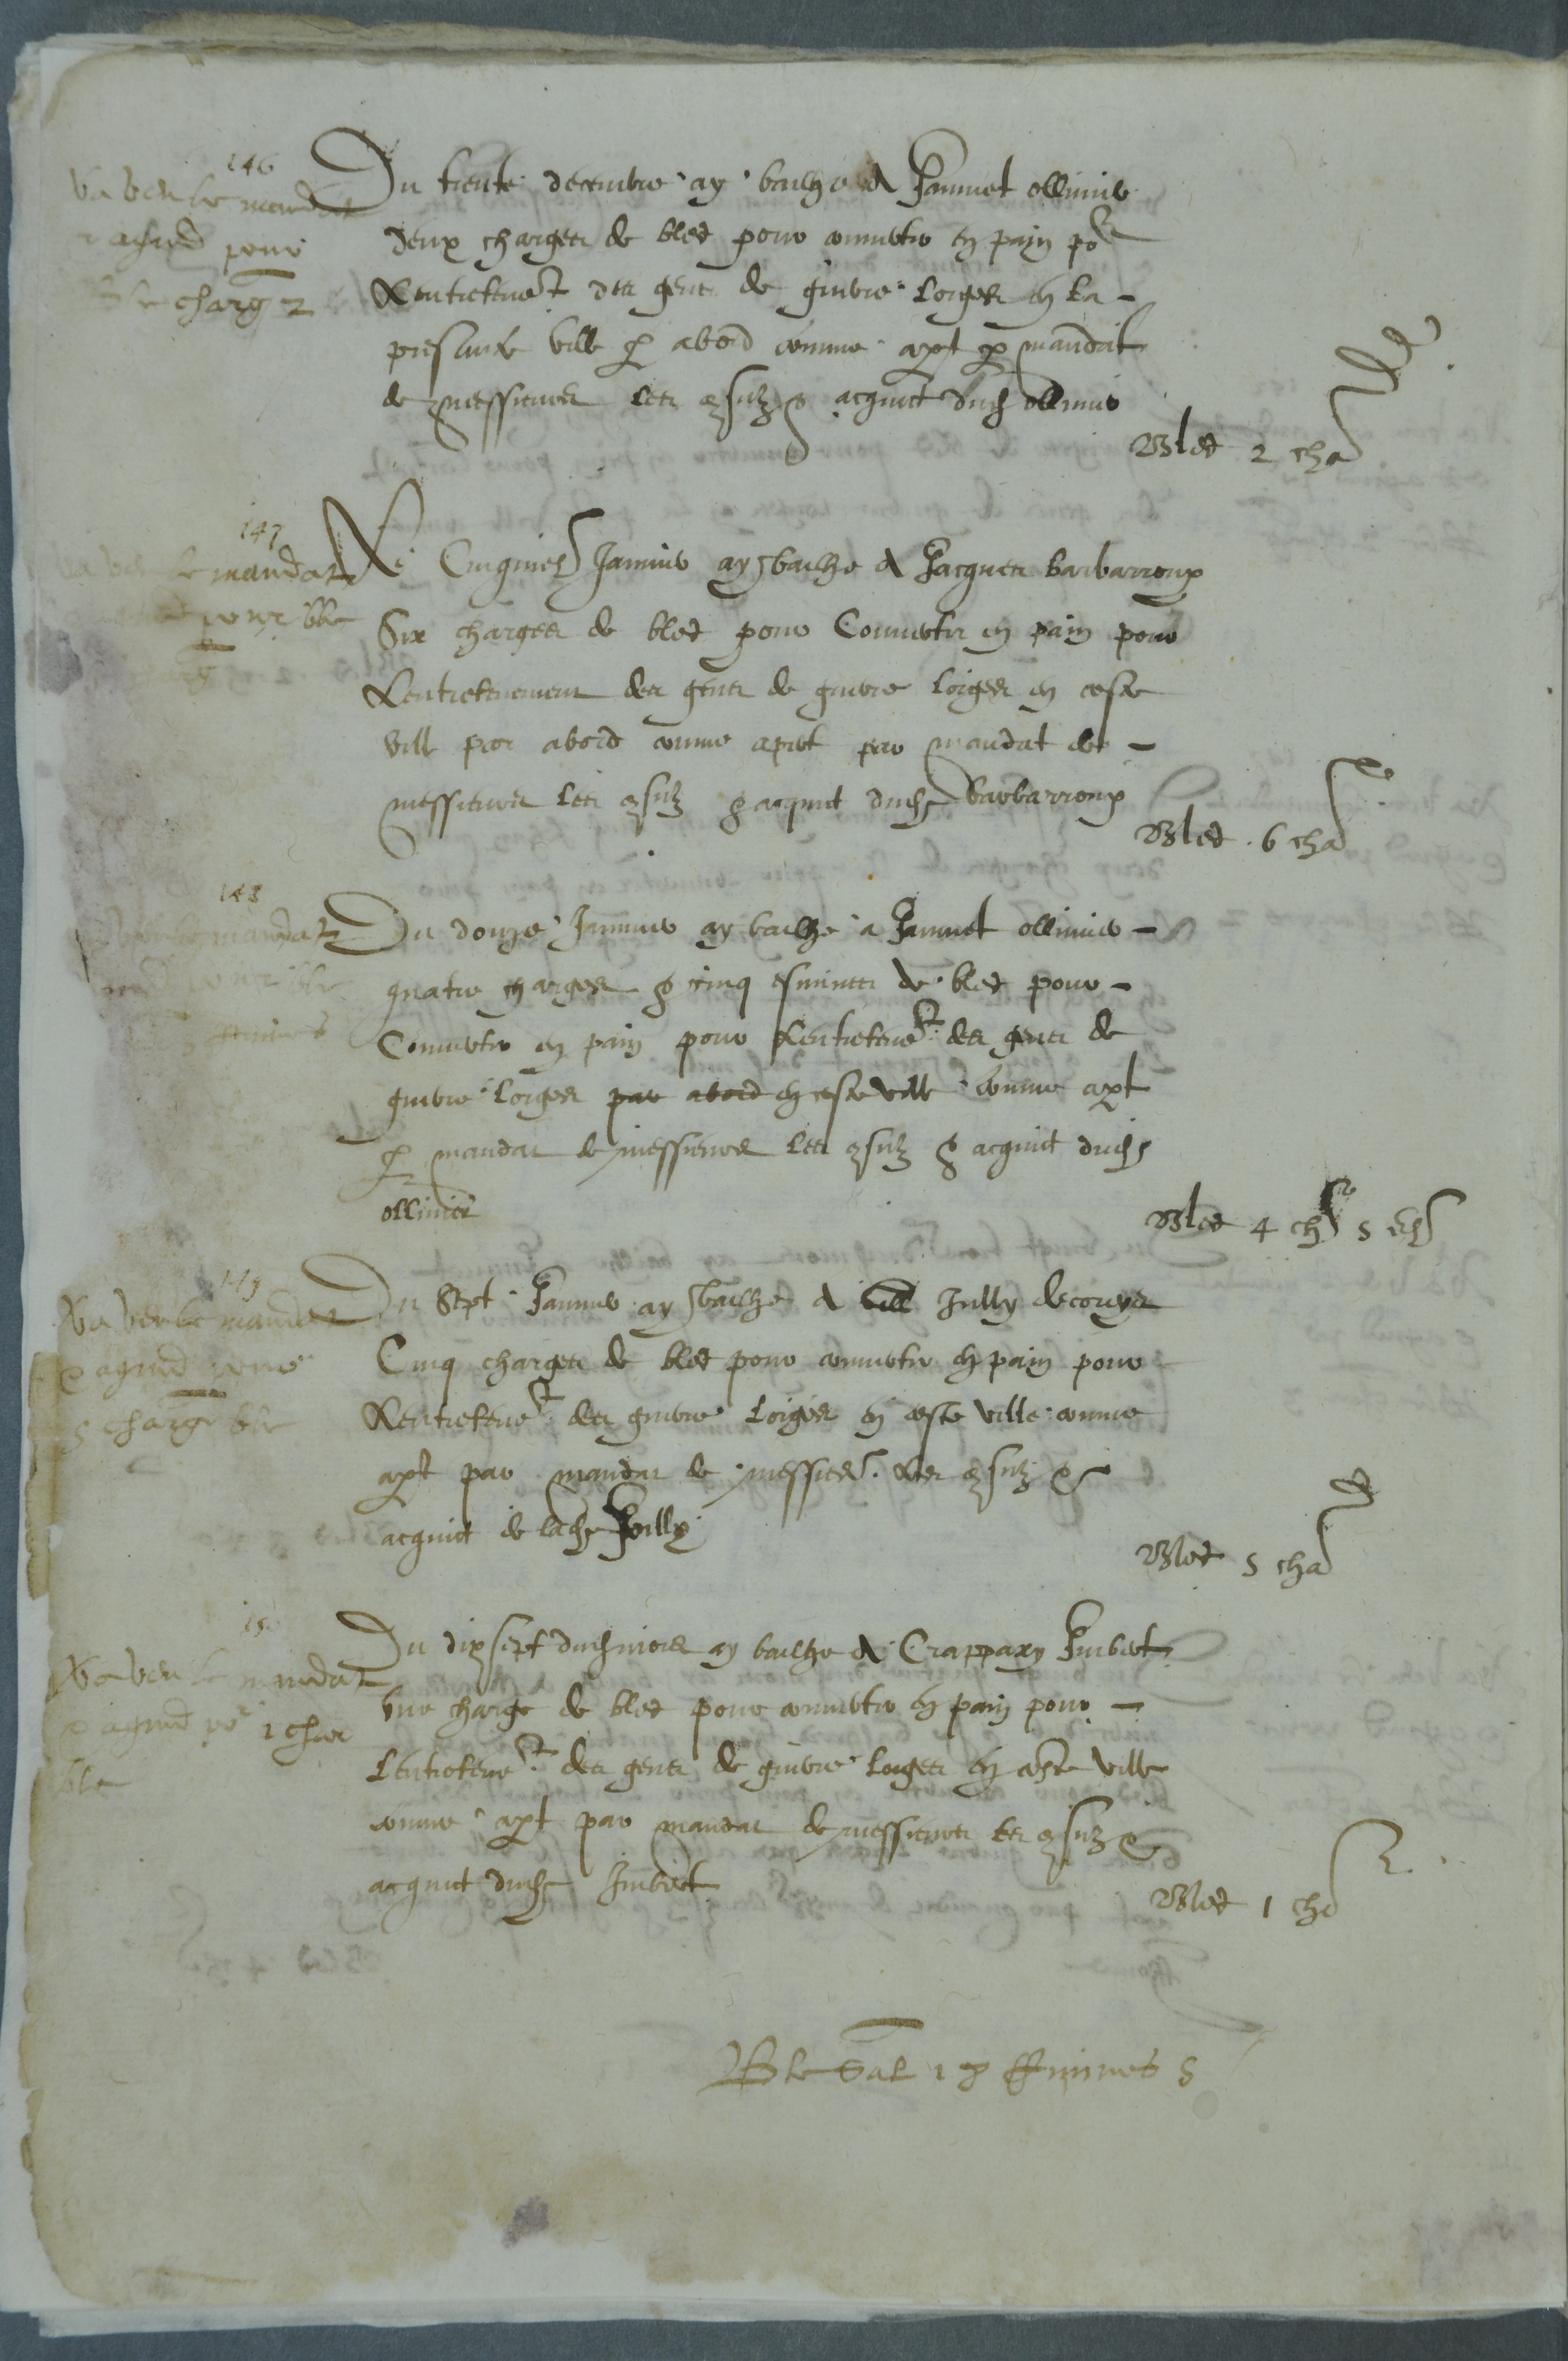 146
Va veu le mandat
& acquit pour
ble charg 2
Du trente decembre ay bailhe a Jaumet ollivier
deux charges de bled pour convertir en pain po.r
Lentretenem.t des gens de guerre loiges en la
presante ville p abord comme apt p mandat
de messieurs les consulz & acquit dudt ollivier
Bled 2 cha
147
le mandat
pour ble
Le Cinquies Janvier ay bailhe a Jacques barbarroux
Six charges de bled pour Convertir en pain pour
Lentretenement des gens de guerre loiges en ceste
ville par abord comme apert par mandat de
messieurs les consulz & acquit dudt barbarroux
Bled 6 cha
148
mandat
pour ble
Du douze Janvier ay bailhe a Jaumet ollivier
quatre charges & cinq esmines de bled pour
Convertir en pain pour Lentretene.t des gens de
guerre loiges par abord en ceste ville comme apt
p mandat de messieurs les consulz & acquit dudt
ollivier
Bled 4 ch 5 es
149
Va veu le mandat
& acquit pour
5 charge ble
Du Sept Janvier ay bailhe a Jully
Cinq charges de bled pour convertir en pain pour
Lentretene.t des guerre loiges en ceste ville comme
apt par mandat de messieurs les consulz &
acquit de ladt Jully
Bled 5 cha
15
Va veu le mandat
& acquit po.r 1 char
ble
Du dix sept dudt mois ay bailhe a Crappaxy Imbert
une charge de bled pour convertir en pain pour
Lentretene.t des gens de guerre loiges en ceste ville
comme apt par mandat de messieurs les consulz &
acquit dudt Imbert
Bled 1 ch
Ble 18 emines 5